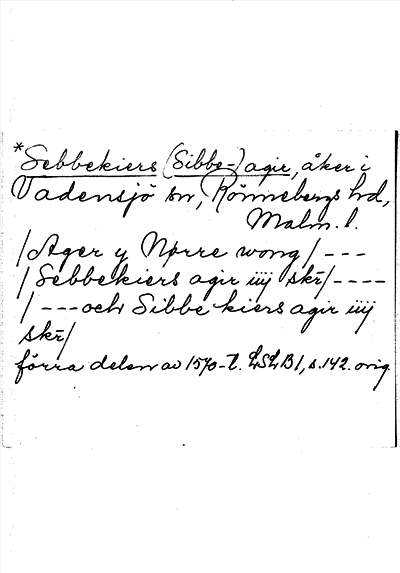 *Sebbekiers (Sibbe-) agir, åker i
Vadensjö sn, Rönnebergs hd,
Malm. l.
/Ager y Nørre wong/ ---
/Sebbekiers agir iiij skr̄/ ----
/---och Sibbe kiers agir iiij
skr̄/
förra delen av 1570-t. LSLB1, s.142. orig.